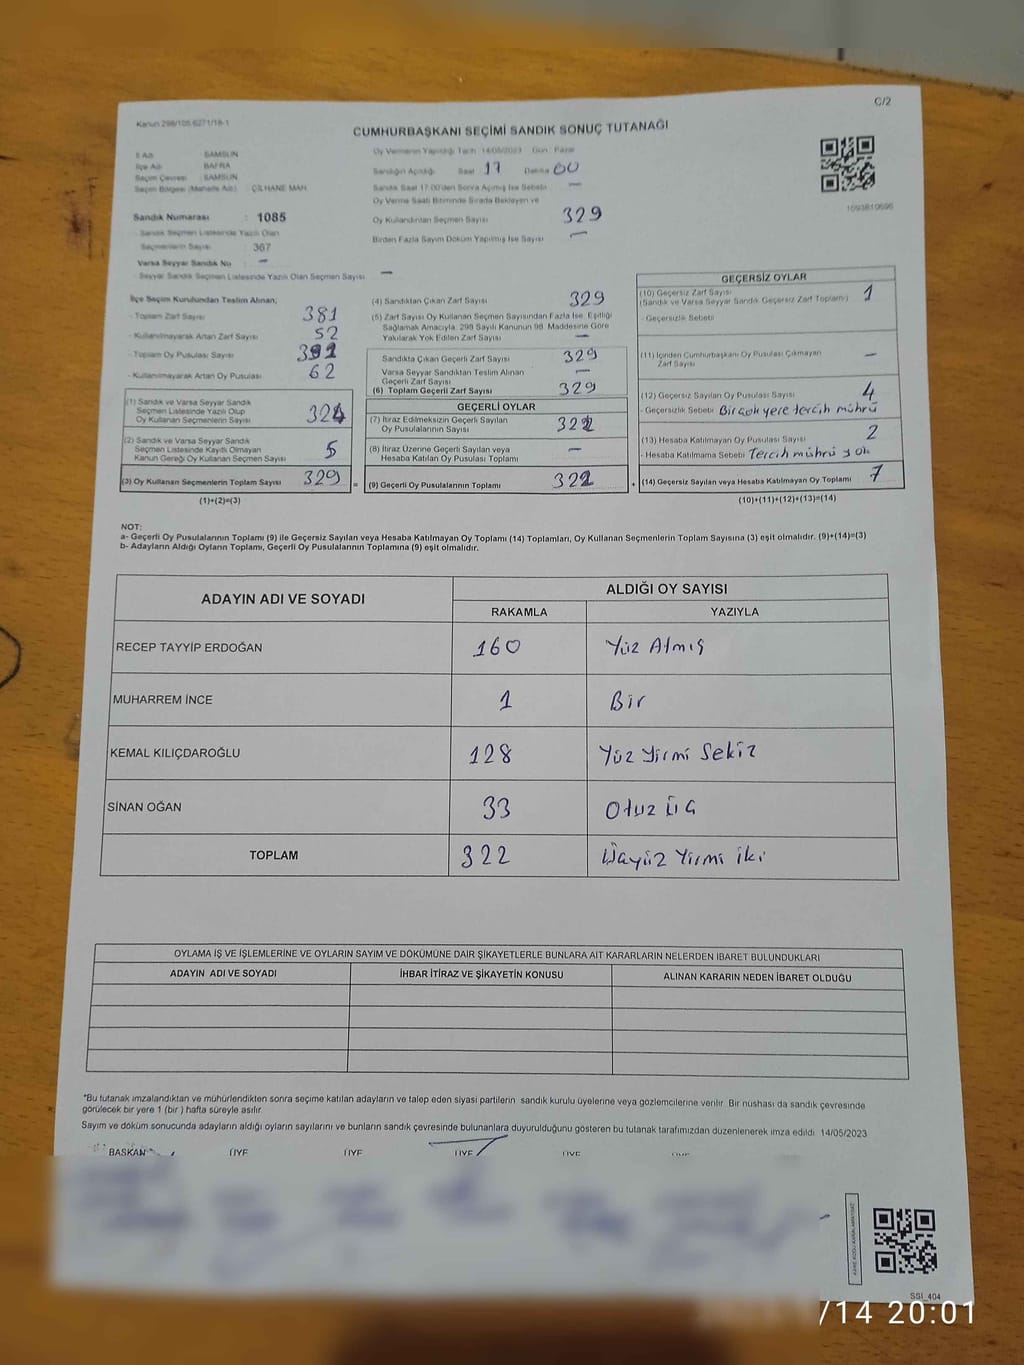 C/2
Kanun 298/105.6271/18-1
CUMHURBAŞKANI SEÇİMİ SANDIK SONUÇ TUTANAĞI
İl Adı : SAMSUN
İlçe Adı : BAFRA
Seçim Çevresi : SAMSUN
Seçim Bölgesi (Mahalle Adı) : ÇİLHANE MAH.
Sandık Numarası : 1085
Sandık Seçmen Listesinde Yazılı Olan
Seçmenlerin Sayısı : 367
Varsa Seyyar Sandık No : -
Seyyar Sandık Seçmen Listesinde Yazılı Olan Seçmen Sayısı -
Oy Vermenin Yapıldığı Tarih: 14/05/2023 Gün : Pazar
Sandığın Açıldığı Saat 17 Dakika 00
Sandık Saat 17.00'den Sonra Açılmış İse Sebebi -
Oy Verme Saati Bitiminde Sırada Bekleyen ve
Oy Kullandırılan Seçmen Sayısı 329
Birden Fazla Sayım Döküm Yapılmış İse Sayısı -
İlçe Seçim Kurulundan Teslim Alınan;
- Toplam Zarf Sayısı 381
- Kullanılmayarak Artan Zarf Sayısı 52
- Toplam Oy Pusulası Sayısı 391
- Kullanılmayarak Artan Oy Pusulası 62
(1) Sandık ve Varsa Seyyar Sandık
Seçmen Listesinde Yazılı Olup
Oy Kullanan Seçmenlerin Sayısı 324
(2) Sandık ve Varsa Seyyar Sandık
Seçmen Listesinde Kayıtlı Olmayan
Kanun Gereği Oy Kullanan Seçmen Sayısı 5
(3) Oy Kullanan Seçmenlerin Toplam Sayısı 329
(1)+(2)=(3)
(4) Sandıktan Çıkan Zarf Sayısı 329
(5) Zarf Sayısı Oy Kullanan Seçmen Sayısından Fazla İse, Eşitliği
Sağlamak Amacıyla, 298 Sayılı Kanunun 98. Maddesine Göre
Yakılarak Yok Edilen Zarf Sayısı -
Sandıkta Çıkan Geçerli Zarf Sayısı 329
Varsa Seyyar Sandıktan Teslim Alınan
Geçerli Zarf Sayısı -
(6) Toplam Geçerli Zarf Sayısı 329
GEÇERLİ OYLAR
(7) İtiraz Edilmeksizin Geçerli Sayılan
Oy Pusulalarının Sayısı 322
(8) İtiraz Üzerine Geçerli Sayılan veya
Hesaba Katılan Oy Pusulası Toplamı -
= (9) Geçerli Oy Pusulalarının Toplamı 322
GEÇERSİZ OYLAR
(10) Geçersiz Zarf Sayısı 1
(Sandık ve Varsa Seyyar Sandık Geçersiz Zarf Toplamı)
- Geçersizlik Sebebi
(11) İçinden Cumhurbaşkanı Oy Pusulası Çıkmayan
Zarf Sayısı -
(12) Geçersiz Sayılan Oy Pusulası Sayısı 4
- Geçersizlik Sebebi Birçok yere tercih mührü
(13) Hesaba Katılmayan Oy Pusulası Sayısı 2
- Hesaba Katılmama Sebebi Tercih mührü yok
+ (14) Geçersiz Sayılan veya Hesaba Katılmayan Oy Toplamı 7
(10)+(11)+(12)+(13)=(14)
NOT:
a- Geçerli Oy Pusulalarının Toplamı (9) ile Geçersiz Sayılan veya Hesaba Katılmayan Oy Toplamı (14) Toplamları, Oy Kullanan Seçmenlerin Toplam Sayısına (3) eşit olmalıdır. (9)+(14)=(3)
b- Adayların Aldığı Oyların Toplamı, Geçerli Oy Pusulalarının Toplamına (9) eşit olmalıdır.
ADAYIN ADI VE SOYADI ALDIĞI OY SAYISI
RAKAMLA YAZIYLA
RECEP TAYYİP ERDOĞAN 160 Yüz Atmış
MUHARREM İNCE 1 Bir
KEMAL KILIÇDAROĞLU 128 Yüz Yirmi Sekiz
SİNAN OĞAN 33 Otuz Üç
TOPLAM 322 Üçyüz Yirmi iki
OYLAMA İŞ VE İŞLEMLERİNE VE OYLARIN SAYIM VE DÖKÜMÜNE DAİR ŞİKAYETLERLE BUNLARA AİT KARARLARIN NELERDEN İBARET BULUNDUKLARI
ADAYIN ADI VE SOYADI İHBAR İTİRAZ VE ŞİKAYETİN KONUSU ALINAN KARARIN NEDEN İBARET OLDUĞU
*Bu tutanak imzalandıktan ve mühürlendikten sonra seçime katılan adayların ve talep eden siyasi partilerin sandık kurulu üyelerine veya gözlemcilerine verilir. Bir nüshası da sandık çevresinde
görülecek bir yere 1 (bir ) hafta süreyle asılır.
Sayım ve döküm sonucunda adayların aldığı oyların sayılarını ve bunların sandık çevresinde bulunanlara duyurulduğunu gösteren bu tutanak tarafımızdan düzenlenerek imza edildi. 14/05/2023
BAŞKAN ÜYE ÜYE ÜYE ÜYE
SSI_404
/14 20:01